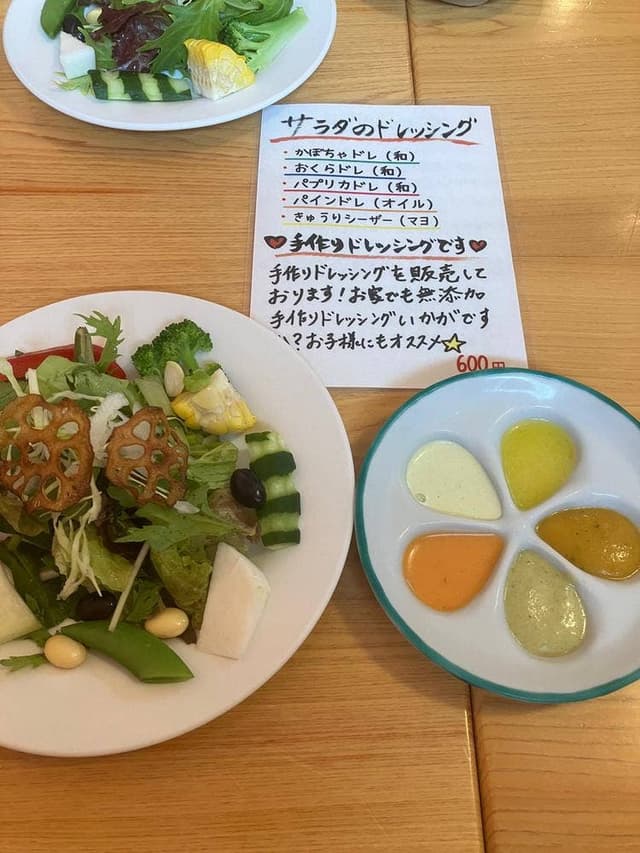 サラダのドレッシング
・かぼちゃドレ(和)
・おくらドレ(和)
・パプリカドレ(和)
・パインドレ(オイル)
・きゅうりシーザー(マヨ)
♥手作りドレッシングです♥
手作りドレッシングを販売して
おります!お家でも無添加
手作りドレッシングいかがです
か?お子様にもオススメ☆
600円